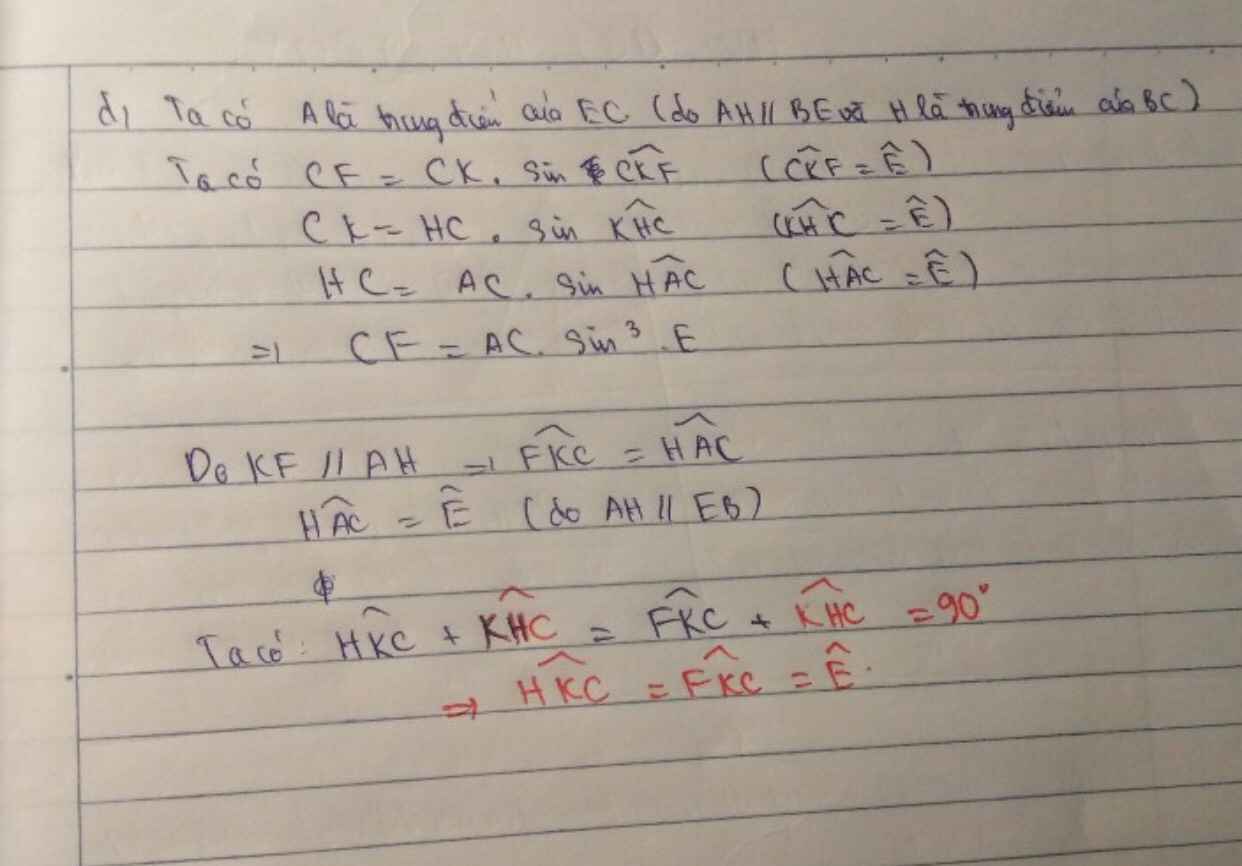 d, Ta có A là trung điểm của EC (do AH // BE và H là trung điểm của BC)
Ta có CF = CK. Sin \widehat{CKF} (\widehat{CKF} = \hat{E})
CK = HC. Sin \widehat{KHC} (\widehat{KHC} = \hat{E})
HC = AC. Sin \widehat{HAC} (\widehat{HAC} = \hat{E})
=> CF = AC. Sin³.E
Do KF // AH => \widehat{FKC} = \widehat{HAC}
\widehat{HAC} = \hat{E} (do AH // EB)
Ta có: \widehat{HKC} + \widehat{KHC} = \widehat{FKC} + \widehat{KHC} = 90°
=> \widehat{HKC} = \widehat{FKC} = \hat{E}.